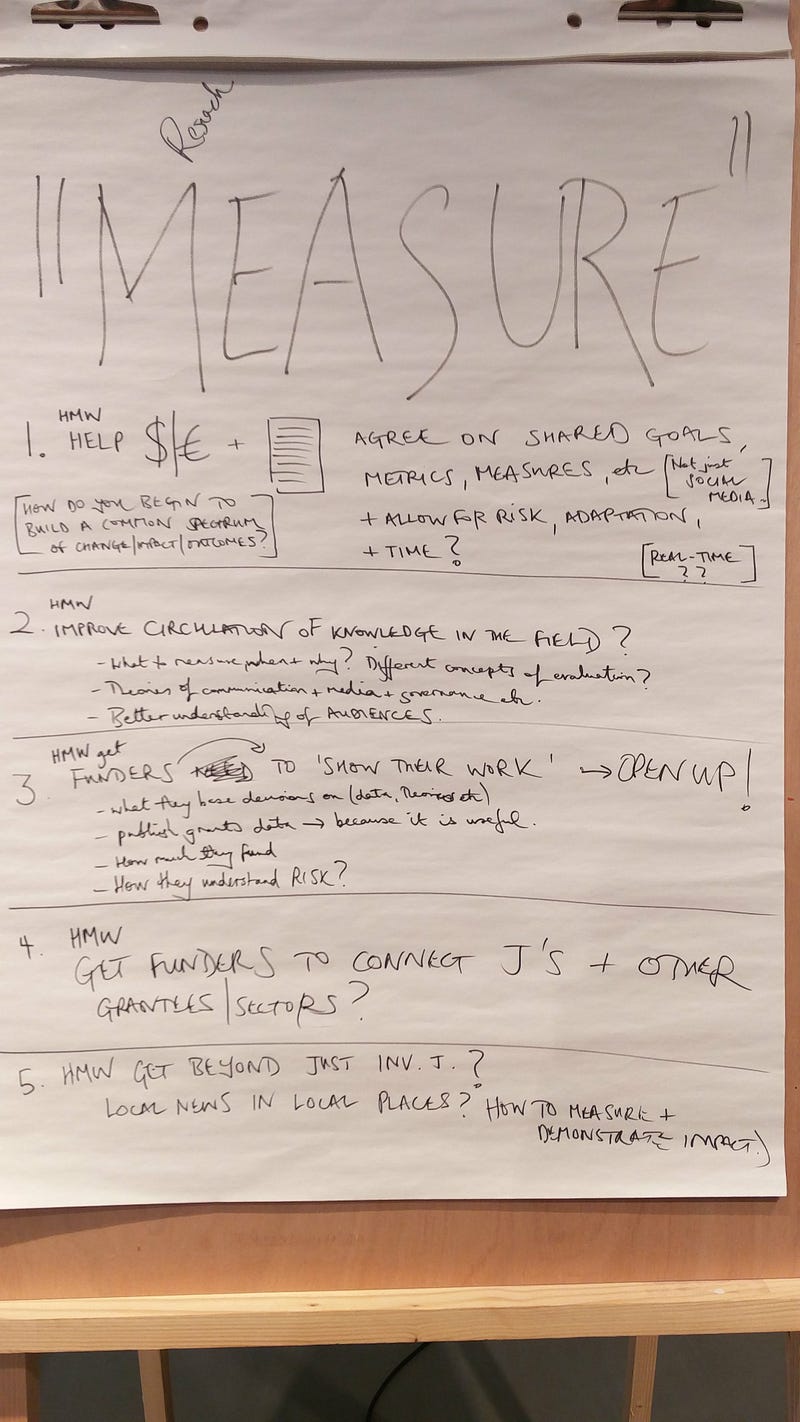 "MEASURE"
HMW
1. HELP $/€ + AGREE ON SHARED GOALS,
METRICS, MEASURES, etc [Not just
SOCIAL
MEDIA.]
+ ALLOW FOR RISK, ADAPTATION,
+ TIME?
[REAL-TIME
??]
[HOW DO YOU BEGIN TO
BUILD A COMMON SPECTRUM
OF CHANGE/IMPACT/OUTCOMES?]
HMW
2. IMPROVE CIRCULATION OF KNOWLEDGE IN THE FIELD?
- What to measure, when + why? Different concepts of evaluation?
- Theories of communication + media + governance etc.
- Better understanding of AUDIENCES.
HMW get
3 FUNDERS TO 'SHOW THEIR WORK' → OPEN UP!
- what they base decisions on (data, Theories etc)
- publish grants data → because it is useful.
- How much they fund
- How they understand RISK?
4. HMW
GET FUNDERS TO CONNECT J'S + OTHER
GRANTEES/SECTORS?
5. HMW GET BEYOND JUST INV. J.?
LOCAL NEWS IN LOCAL PLACES? HOW TO MEASURE +
DEMONSTRATE IMPACT.)